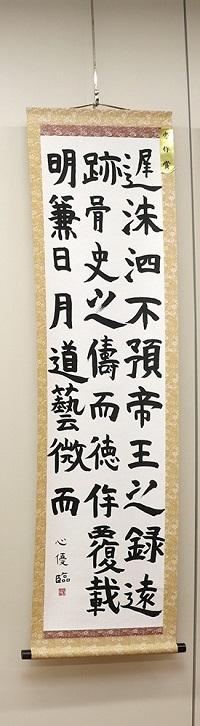 秀作賞
遲洙泗不預帝王之録遠
跡胥史之儔而徳侔覆載
明兼日月道藝微而
心優臨